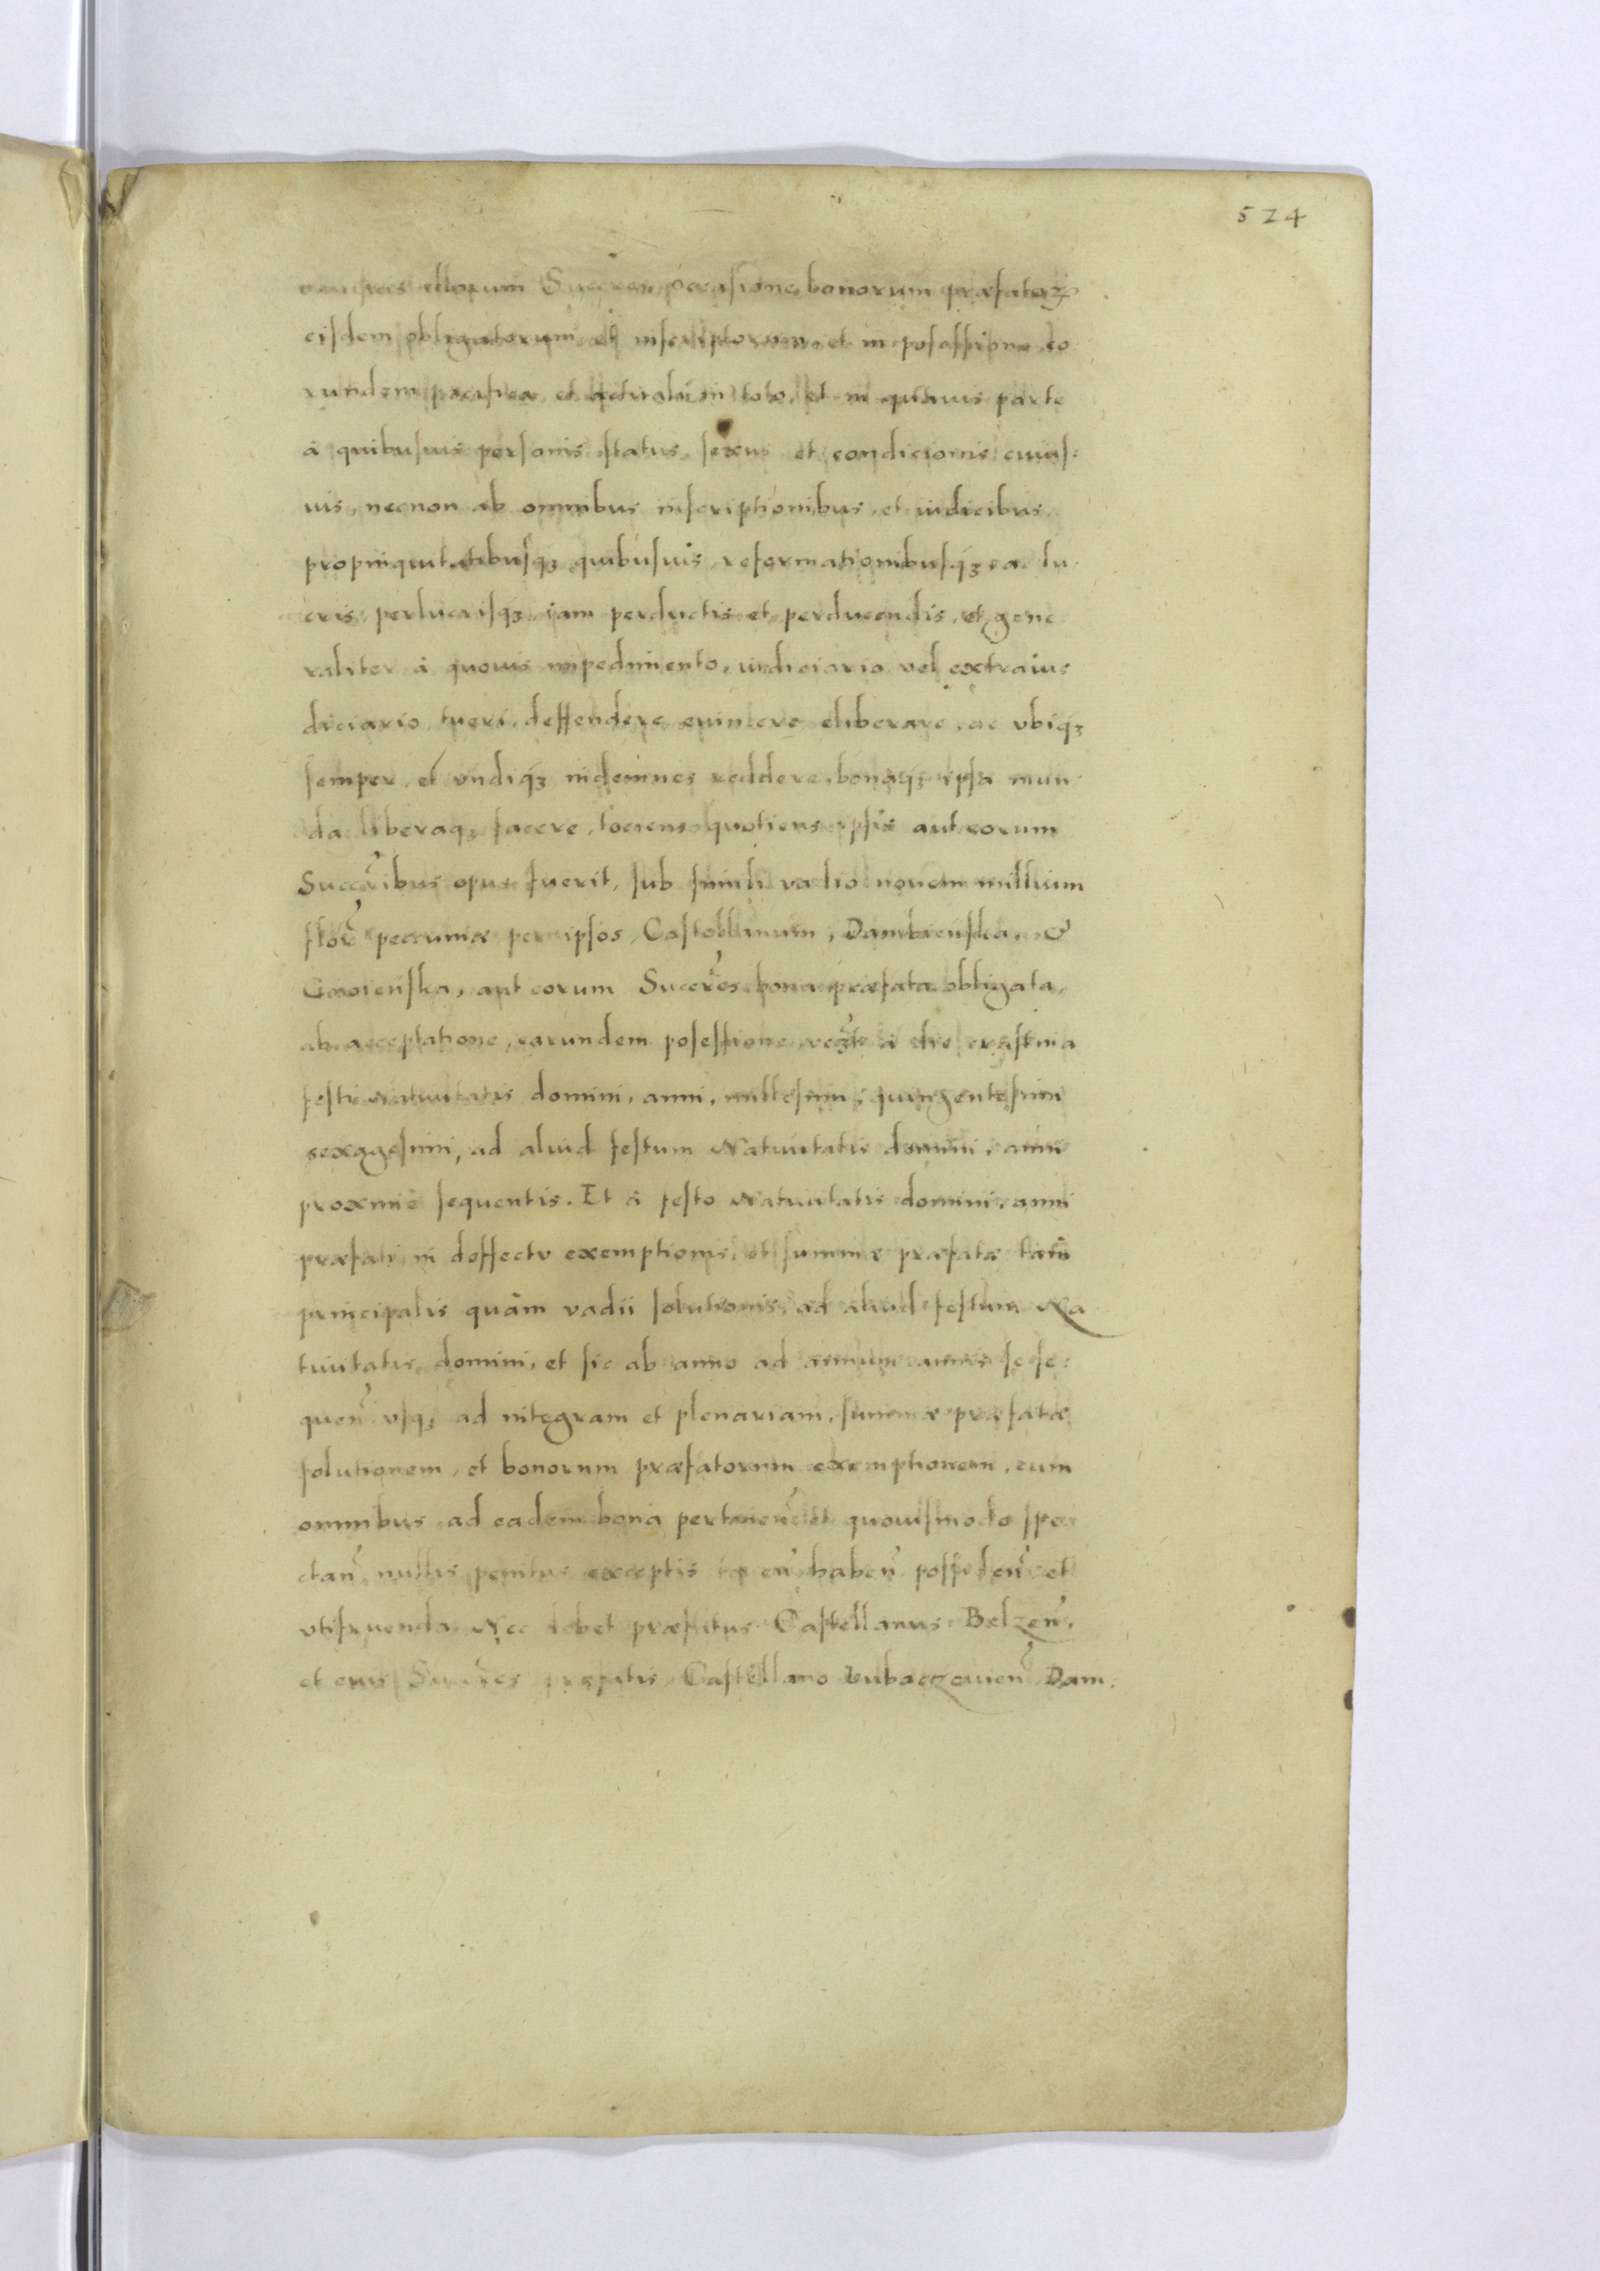 524
illorum Succ occasione bonorum præfatorꝝ
eisdem obligatorum et inscriptorum, et in posessione eo
rundem pacifica et actuali in toto, et in quavis parte
à quibusuis personis status, sexus et condicionis cuius:
uis, necnon ab omnibus inscriptionibus, et iudicibus
propinquitatibusqꝫ quibusuis, reformationibusqꝫ, ac lu
cris perlucrisqꝫ iam perductis et perducendis, et gene
raliter à quouis impedimento, iudiciario vel extraiue
diciario tueri, deffendere euincere eliberare, ac vbiqꝫ
semper et vndiqꝫ indemnes reddere, bonaqꝫ ipsa mun
da liberaqꝫ facere, tociens quotiens ipsis aut eorum
Succr̃ibus opus fuerit, sub simili vadio nouem millium
flor̃ pecuniæ per ipsos Castellanum, Dambienska, &
aut eorum Succr̃es bona præfata obligata,
ab acceptatione, earundem posessione à die crastina
festi Natiuitatis domini, anni, millesimi, quingentesimi
sexagesimi, ad aliud festum Natiuitatis domini, anni
proxime sequentis. Et à festo Natiuitatis domini, anni
præfati in deffectu exemptionis, et summæ præfatæ tam
principalis quàm vadii solutionis, ad aliud festum Na
tiuitatis domini, et sic ab anno ad annum annis se se:
quen̄ vsqꝫ ad integram et plenariam, summæ præfatæ
solutionem, et bonorum præfatorum exemptionem, cum
omnibus ad eadem bona pertinen̄ et quouismodo spe
ctan̄ nullis penitus exceptis ten̄ haben̄ possiden̄ et
vtifruenda Nec debet præfatus Castellanus Belzen̄,
et eius Succr̃es præfatis Castellano Lubaczouien̄ Dam: